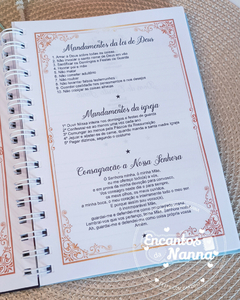 Mandamentos da lei de Deus
1. Amar a Deus sobre todas as coisas
2. Não tomar o santo nome de Deus em vão
3. Santificar os Domingos e Festas de Guarda
4. Honrar pai e mãe
5. Não matar
6. Não cometer adultério
7. Não roubar
8. Não levantar falsos testemunhos
9. Guardar castidade nos pensamentos e nos desejos
10. Não cobiçar as coisas alheias
Mandamentos da igreja
1º Ouvir missa inteira nos domingos e festas de guarda
2º Confessar-se ao menos uma vez cada ano
3º Comungar ao menos pela Páscoa da Ressurreição
4º Jejuar e abster-se de carne, quando manda a santa madre igreja
5º Pagar dízimos, segundo o costume
Consagração a Nossa Senhora
Ó Senhora minha, ó minha Mãe,
eu me ofereço todo(a) a vós,
e em prova da minha devoção para convosco,
Vos consagro neste dia e para sempre,
os meus olhos, os meus ouvidos,
a minha boca, o meu coração e inteiramente todo o meu ser.
E porque assim sou vosso(a),
ó incomparável Mãe,
guardai-me e defendei-me como
Lembrai-vos que vos pertenço, terna Mãe,
Ah, guardai-me e defendei-me como coisa própria vossa
Amém.
Encantos
da
Nanna